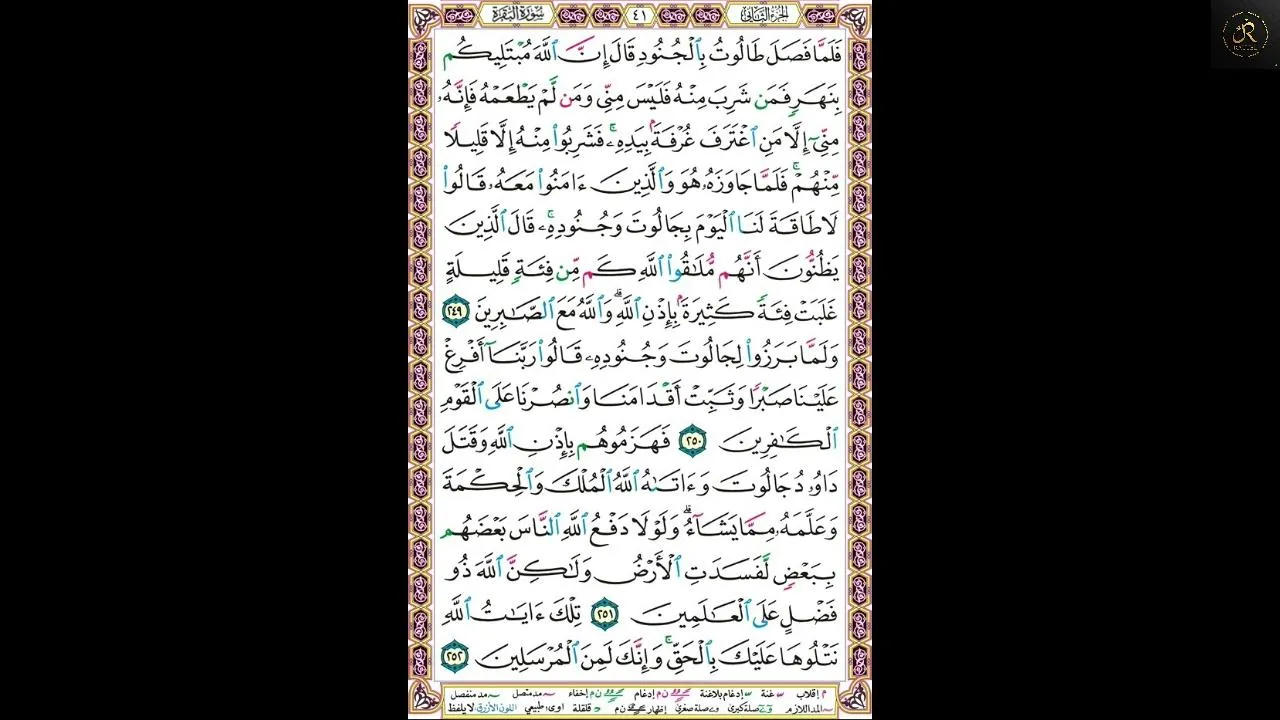 الجزء الثاني
٤١
سورة البقرة
فَلَمَّا فَصَلَ طَالُوتُ بِٱلْجُنُودِ قَالَ إِنَّ ٱللَّهَ مُبْتَلِيكُم
بِنَهَرٍ فَمَن شَرِبَ مِنْهُ فَلَيْسَ مِنِّى وَمَن لَّمْ يَطْعَمْهُ فَإِنَّهُۥ
مِنِّىٓ إِلَّا مَنِ ٱغْتَرَفَ غُرْفَةًۢ بِيَدِهِۦۚ فَشَرِبُوا۟ مِنْهُ إِلَّا قَلِيلًا
مِّنْهُمْۚ فَلَمَّا جَاوَزَهُۥ هُوَ وَٱلَّذِينَ ءَامَنُوا۟ مَعَهُۥ قَالُوا۟
لَا طَاقَةَ لَنَا ٱلْيَوْمَ بِجَالُوتَ وَجُنُودِهِۦۚ قَالَ ٱلَّذِينَ
يَظُنُّونَ أَنَّهُم مُّلَٰقُوا۟ ٱللَّهِ كَم مِّن فِئَةٍ قَلِيلَةٍ
غَلَبَتْ فِئَةً كَثِيرَةًۢ بِإِذْنِ ٱللَّهِۗ وَٱللَّهُ مَعَ ٱلصَّٰبِرِينَ ٢٤٩
وَلَمَّا بَرَزُوا۟ لِجَالُوتَ وَجُنُودِهِۦ قَالُوا۟ رَبَّنَآ أَفْرِغْ
عَلَيْنَا صَبْرًا وَثَبِّتْ أَقْدَامَنَا وَٱنصُرْنَا عَلَى ٱلْقَوْمِ
ٱلْكَٰفِرِينَ ٢٥٠ فَهَزَمُوهُم بِإِذْنِ ٱللَّهِ وَقَتَلَ
دَاوُۥدُ جَالُوتَ وَءَاتَىٰهُ ٱللَّهُ ٱلْمُلْكَ وَٱلْحِكْمَةَ
وَعَلَّمَهُۥ مِمَّا يَشَآءُۗ وَلَوْلَا دَفْعُ ٱللَّهِ ٱلنَّاسَ بَعْضَهُم
بِبَعْضٍ لَّفَسَدَتِ ٱلْأَرْضُ وَلَٰكِنَّ ٱللَّهَ ذُو
فَضْلٍ عَلَى ٱلْعَٰلَمِينَ ٢٥١ تِلْكَ ءَايَٰتُ ٱللَّهِ
نَتْلُوهَا عَلَيْكَ بِٱلْحَقِّۚ وَإِنَّكَ لَمِنَ ٱلْمُرْسَلِينَ ٢٥٢
م إقلاب غنة إدغام بلاغنة ن م إدغام ن م إخفاء مد متصل مد منفصل
المد اللازم صلة كبرى صلة صغرى إظهار ن م قلقلة اوى، طبيعي اللون الأزرق لا يلفظ